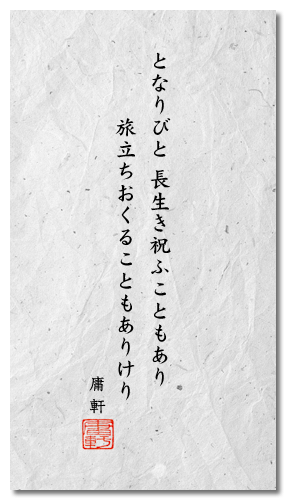 となりびと 長生き祝ふこともあり
旅立ちおくることもありけり
庸軒
庸軒